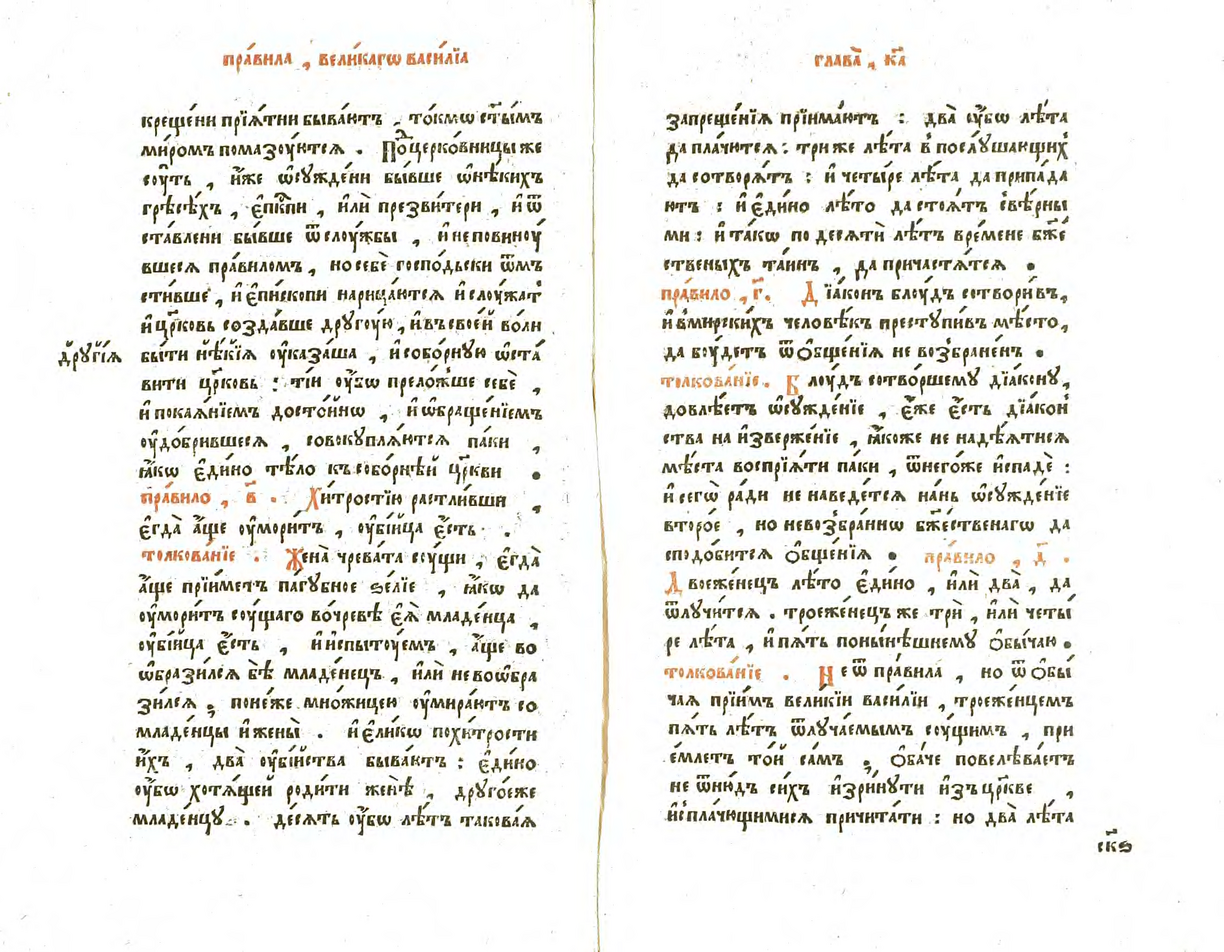 пра́вила , вели́кагѡ васи́лїа
креще́ни прїѧ́тни быва́ютъ , то́кмѡ ст҃ы́мъ
ми́ромъ помазоу́ютсѧ . По́церковницы же
соу́ть , и҆́же ѡ҆сужде́ни бывше ѡ҆нѣ́кихъ
грѣсѣ́хъ , є҆пкⷭ҇пи , и҆лѝ презви́тери , и҆ ѿ
ста́влени бы́вше ѿ слоу́жбы , и҆ не повиноу́
вшесѧ пра́виломъ , но себѐ госпо́дьски ѿмъ
сти́вше , и҆ є҆пи́скопи нарица́ютсѧ и҆ слоу́жат
и҆ цр҃ковь созда́вше другоу́ю , и҆ въ свое́й во́ли
дрꙋгі́ѧ
бы́ти нѣ́кїѧ оу҆каза́ша , и҆ собо́рную ѡ҆ста́
вити цр҃ковь : ті́и оу҆́бѡ прело́жше себѐ ,
и҆ покаѧ́нїемъ досто́йнѡ , и҆ ѡ҆браще́нїемъ
оу҆до́брившесѧ , совокуплѧ́ютсѧ па́ки ,
ꙗ҆́кѡ є҆ди́но тѣ́ло къ собо́рнѣй цр҃кви .
пра́вило , в҃ . Хи́тростїю растли́вши ,
є҆гда̀ а҆́ще оу҆мори́тъ , оу҆бі́йца є҆́сть .
толкова́нїе . Жена̀ чрева́та соу́щи , є҆гда̀
а҆́ще прїи́метъ па́губное ѕе́лїе , ꙗ҆́кѡ да
оу҆мори́тъ соу́щаго во чре́вѣ є҆ѧ̀ младе́нца ,
оу҆бі́йца є҆́сть , и҆ и҆спытоу́емъ , а҆́ще во
ѡ҆брази́лсѧ бѣ̀ младе́нецъ , и҆лѝ не воѡ҆бра
зи́лсѧ ; поне́же мно́жицею оу҆мира́ютъ со
младе́нцы и҆ жены̀ . и҆ є҆ли́кѡ по хи́трости
и҆́хъ , два̀ оу҆бі́йства быва́ютъ : є҆ди́но
оу҆́бѡ хотѧ́щей роди́ти женѣ̀ , друго́еже
младе́нцу . де́сѧть оу҆́бѡ лѣ́тъ такова́ѧ
глава̀ , к҃а
запреще́нїѧ прїима́ютъ : два̀ оу҆́бѡ лѣ́та
да пла́чютсѧ : три же лѣ́та в послу́шающих
да сотворѧ́тъ : и҆ четы́ре лѣ́та да припа́да
ютъ : и҆ є҆ди́но лѣ́то да стоѧ́тъ с вѣ́рны
ми : и҆ та́кѡ по десѧтѝ лѣ́тъ времене бж҃е́
ственыхъ та́инъ , да причастѧ́тсѧ .
пра́вило , г҃ . Дїа́конъ блоу́дъ сотвори́въ ,
и҆ в мирски́хъ человѣ́къ преступи́въ мѣ́сто ,
да боу́детъ ѿ о҆бще́нїѧ не возбра́ненъ .
толкова́нїе . Блоу́дъ сотво́ршему дїа́кону ,
довлѣ́етъ ѡ҆сужде́нїе , є҆́же є҆́сть дїа́кон
ства на и҆зверже́нїе , ꙗ҆́коже не надѣ́ѧтисѧ
мѣ́ста воспрїѧ́ти па́ки , ѿ него́же и҆спадѐ :
и҆ сегѡ̀ ра́ди не наведе́тсѧ на́нь ѡ҆сужде́нїе
второ́е , но невозбра́ннѡ бж҃е́ственагѡ да
сподо́битсѧ о҆бще́нїѧ . пра́вило , д҃ .
Двоеже́нецъ лѣ́то є҆ди́но , и҆лѝ два̀ , да
ѿлучи́тсѧ . троеже́нецъ же трѝ , и҆лѝ четы́
ре лѣ́та , и҆ пѧ́ть поны́нѣшнему о҆бы́чаю .
толкова́нїе . Не ѿ пра́вила , но ѿ о҆бы́
чаѧ прїи́мъ вели́кїи васи́лїи , троеже́нцемъ
пѧ́ть лѣ́тъ ѿлуча́емымъ соу́щимъ , при
е́млетъ то́й са́мъ ; о҆ба́че повелѣва́етъ
не ѿню́дъ си́хъ и҆зри́нути и҆зъ цр҃кве ,
и҆ с пла́чющимисѧ причита́ти : но два̀ лѣ́та
ск҃ѕ